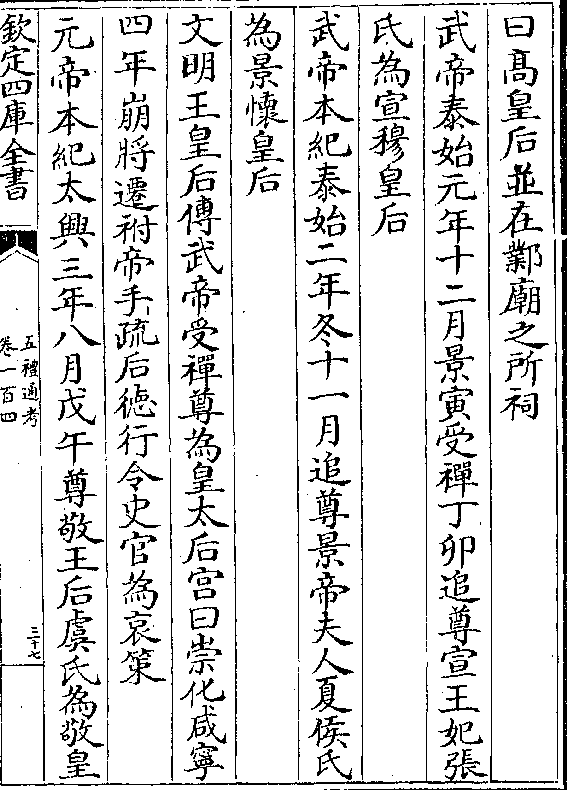 曰髙皇后並在鄴廟之所祠
武帝泰始元年十二月景寅受禪丁卯追尊宣王妃張
氏為宣穆皇后
武帝本紀泰始二年冬十一月追尊景帝夫人夏侯氏
為景懷皇后
文明王皇后傳武帝受禪尊為皇太后宫曰崇化咸寧
四年崩將遷祔帝手疏后徳行令史官為哀策
元帝本紀太興三年八月戊午尊敬王后虞氏為敬皇
欽定四庫全書
五禮通考
卷一百四
三十七